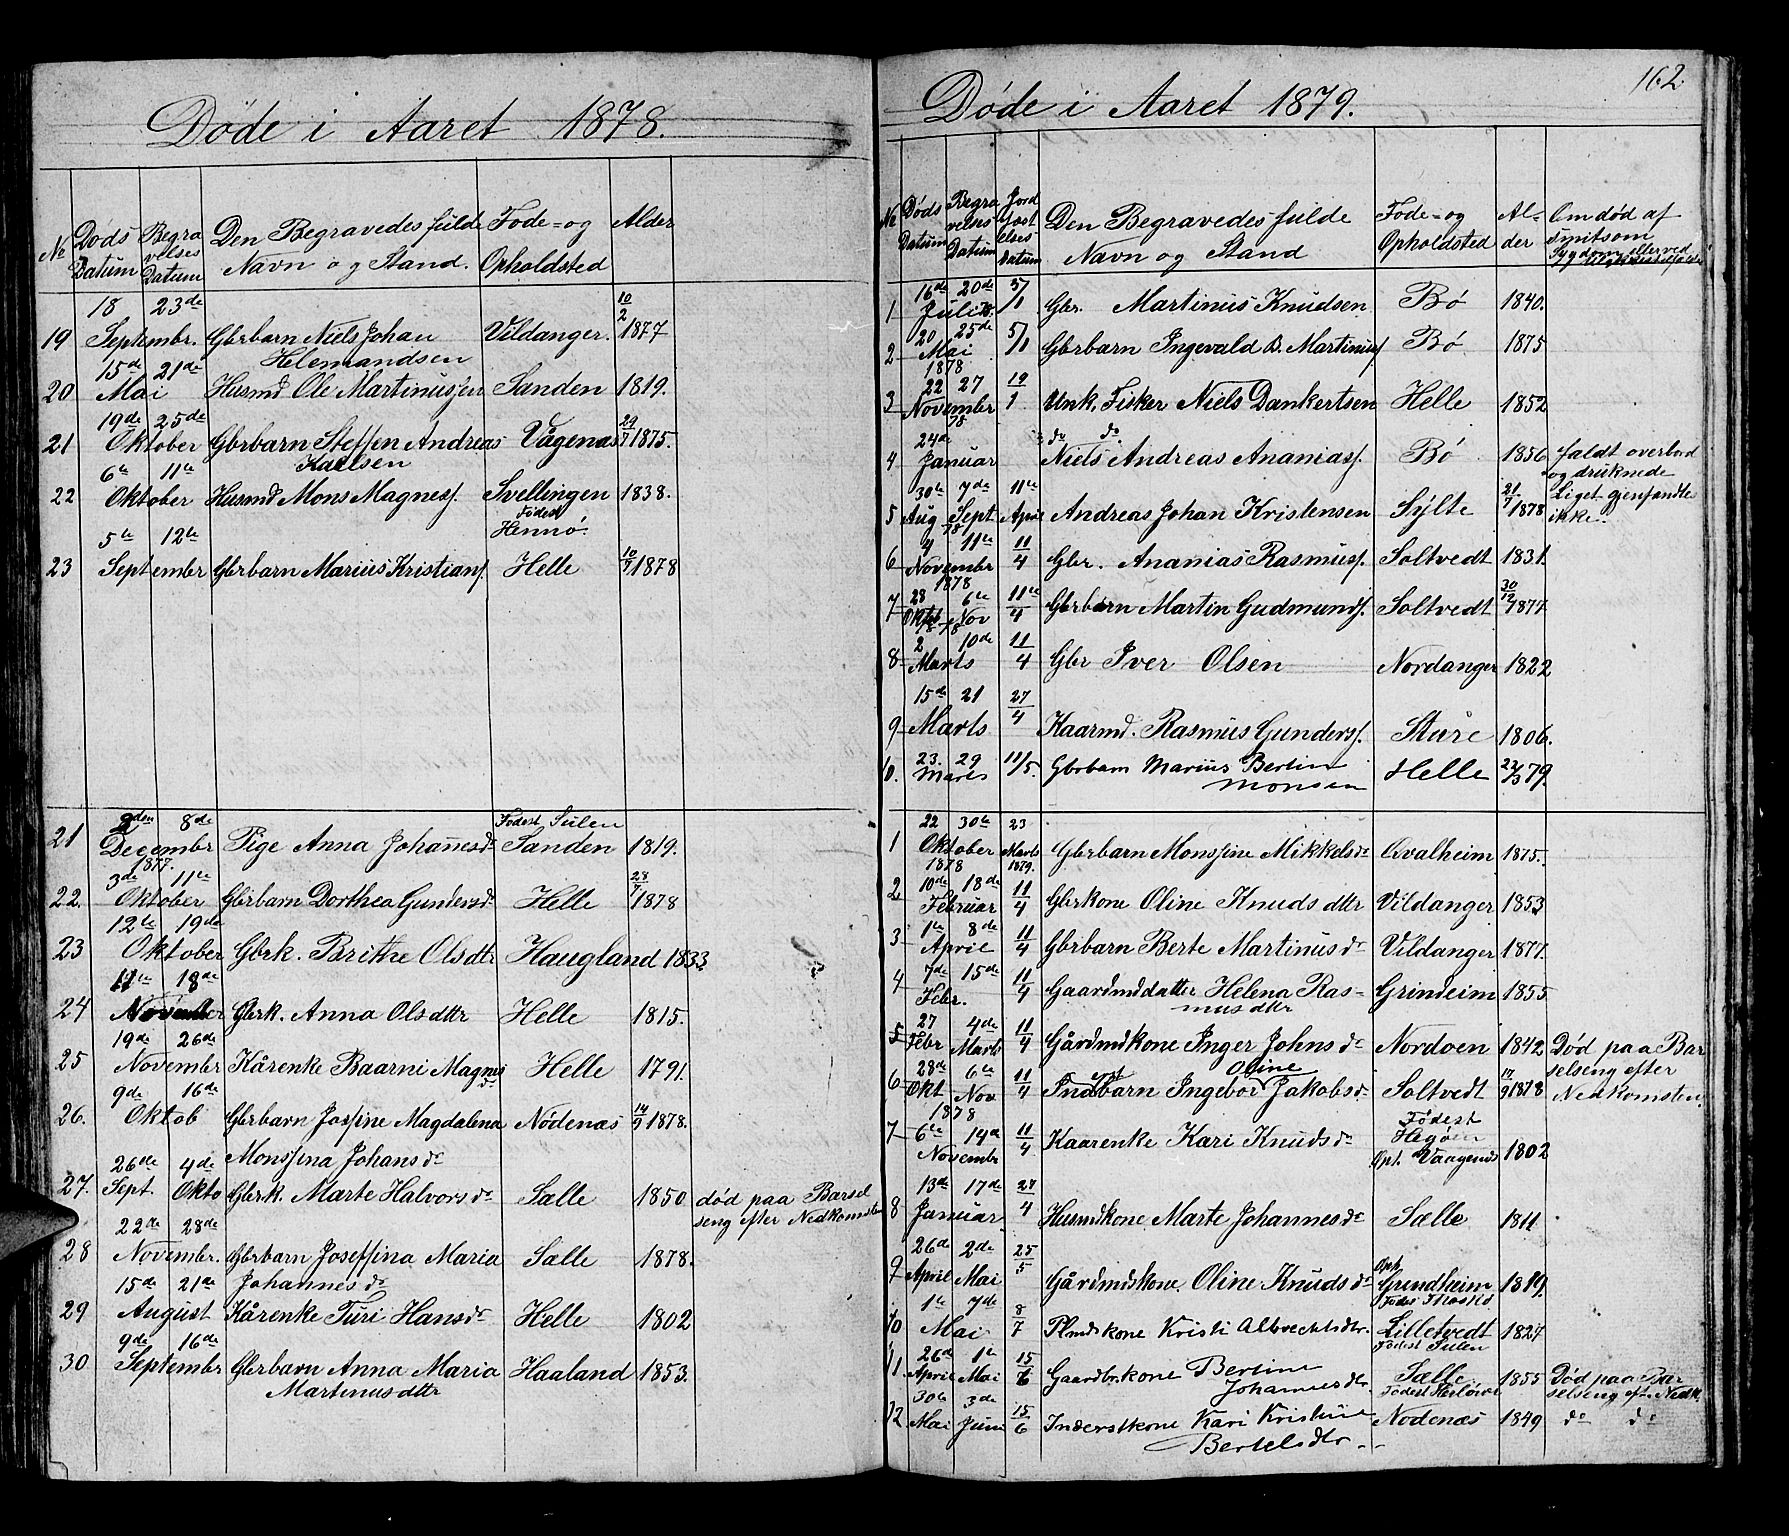 Døde i Aaret 1878.
No Døds Datum Begravelses Datum Den Begravedes fulde Navn og Stand. Føde- og Opholdsted Alder
19 18 Septembr. 23de Gbrbarn Niels Johan Helemandsen Vildanger. 10/2 1877
20 15de Mai 21de Husmd Ole Martinussen Sanden 1819.
21 19de Oktober 25de Gbrbarn Steffen Andreas Karlsen Vågenæs 29/7 1875.
22 6te Oktober 11te Husmd Mons Magness. Svellingen Fødest Hennö. 1838.
23 5te September 12te Gbrbarn Marius Kristians. Helle 10/7 1878
21 2den December 1877. 8de Pige Anna Johannesdr Fødest Sulen Sanden 1819.
22. 3de Oktober 11te Gbrbarn Dorthea Gundersdr Helle 28/7 1878
23 12te Oktober 19de Gbrk. Brithe Olsdttr Haugland 1833.
24 11te November 18de Gbrk. Anna Olsdttr Helle 1815.
25 19de Novembr 26de Kårenke Baarni Magnesdr Helle 1791.
26. 9de Oktob 16de Gbrbarn Jossine Magdalena Monssina Johansdr Nødenæs 14/9 1878.
27. 26de Sept. 4de Okto Gbrk. Marte Halvorsdr Sælle 1850 død paa Barsel seng efter Nedkomsten
28 22de Novembr. 28de Gbrbarn Joseffina Maria Johannesdr Sælle 1878.
29 15de August 21de Kårenke Turi Hansdr Helle 1802
30 9de Septembr 16de Gbrbarn Anna Maria Martinusdttr Haaland 1853.
162.
Døde i Aaret 1879.
No Døds Datum Begravelses Datum Jordfæstelses Datum Den Begravedes fulde Navn og Stand Føde- og Opholdsted Alder Om død af
1 16de Juli 20de 5/1 Gbr. Martinus Knudsen Bø 1840.
2 20 Mai 1878 25de 5/1 Gbrbarn Ingevald B. Martinuss Bø 1875
3 22 November 78 27 19/1 Unk. Fisker Niels Dankertsen Helle 1852
4 24de Januar do do Niels Andreas Ananiass. Bø 1856 faldt overbord og druknede Liget gjenfandtes ikke.
5 30te Aug 7de Sept 78 11te April Andreas Johan Kristensen Sylte 21/7 1878
6 4 November 1878 11te 11/4 Gbr. Ananias Rasmuss. Soltvedt 1831.
7 28 Oktob 78 6te Nov 78 11te/4 Gbrbarn Martin Gudmunds. Soltvedt 30/12 1877
8 2 Marts 10de 11/4 Gbr Iver Olsen Nordanger 1822
9 15de Marts 21 27/4 Kaarmd. Rasmus Gunders. Sture 1806.
10. 23. Marts 29 11/5. Gbrbarn Marius Bertin Monsen Helle 22/3 79.
1 22 Oktober 1878 30te 23 Marts 1879. Gbrbarn Monssine Mikkelsdr Qvalheim 1875.
2 10de Februar 18de 11/4 Gbrkone Oline Knudsdttr Vildanger 1853
3 1te April 8de 11/4 Gbrbarn Berte Martinusdr Vildanger 1877.
4 7de Febr. 15de 11/4 Gaardmddatter Helena Rasmusdttr Grindeim 1855
5 27 Febr 4de Marts 11/4 Gårdmdkone Inger Johnsdr Nordoen 1842 Død paa Barselseng efter Nedkomsten.
6 28de Okt 1878 6te Nov 11/4 Indstbarn Ingebor Oline Jakobsdr Soltvedt 17/9 1878
7 6te November 14de 11/4 Kaarenke Kari Knudsdr Fødest Hegøen Opt. Vaagenæs 1802
8 13de Januar 17de 27/4 Husmdkone Marte Johannesdr Sælle 1811
9 26de April 2de Mai 25/5 Gårdmdskone. Oline Knudsdr Oph Grundheim 1819.
10 1te Mai 7de 8/7 Plmdskone Kristi Albrechtsdtr. Lilletvedt Fødest Sulen 1827
11 26de April 1te Mai 15/6 Gaardbr.kone Bertine Johannesdtr Sælle 1855 Død paa Barselseng eft. Nedk.
12 30te Mai 3de Juni 15/6 Inderstkone Kari Kristine Bertelsdtr. Nodenæs 1849 do do